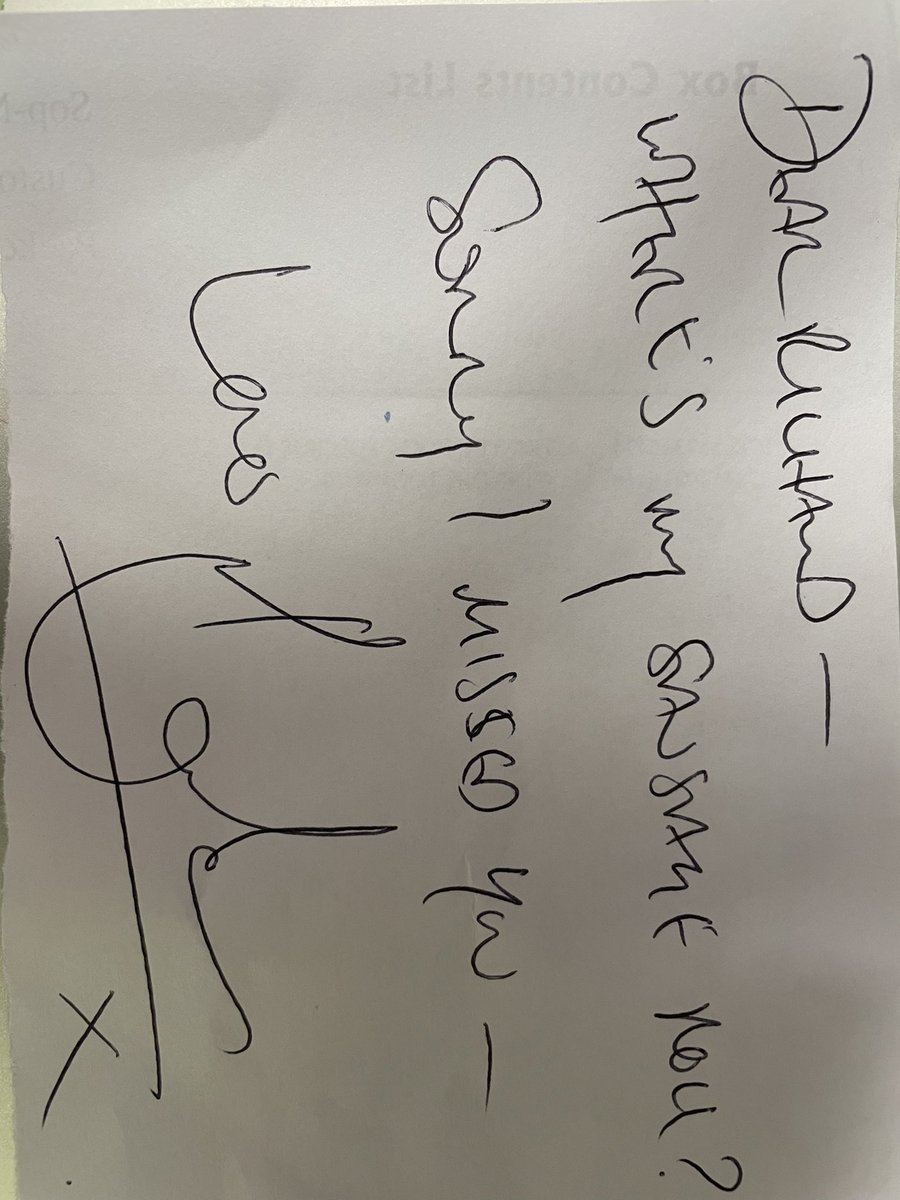 DEAR RICHARD —
WHERE'S MY SAUSAGE ROLL?
SORRY I MISSED YOU —
Love
X
Box Contents List